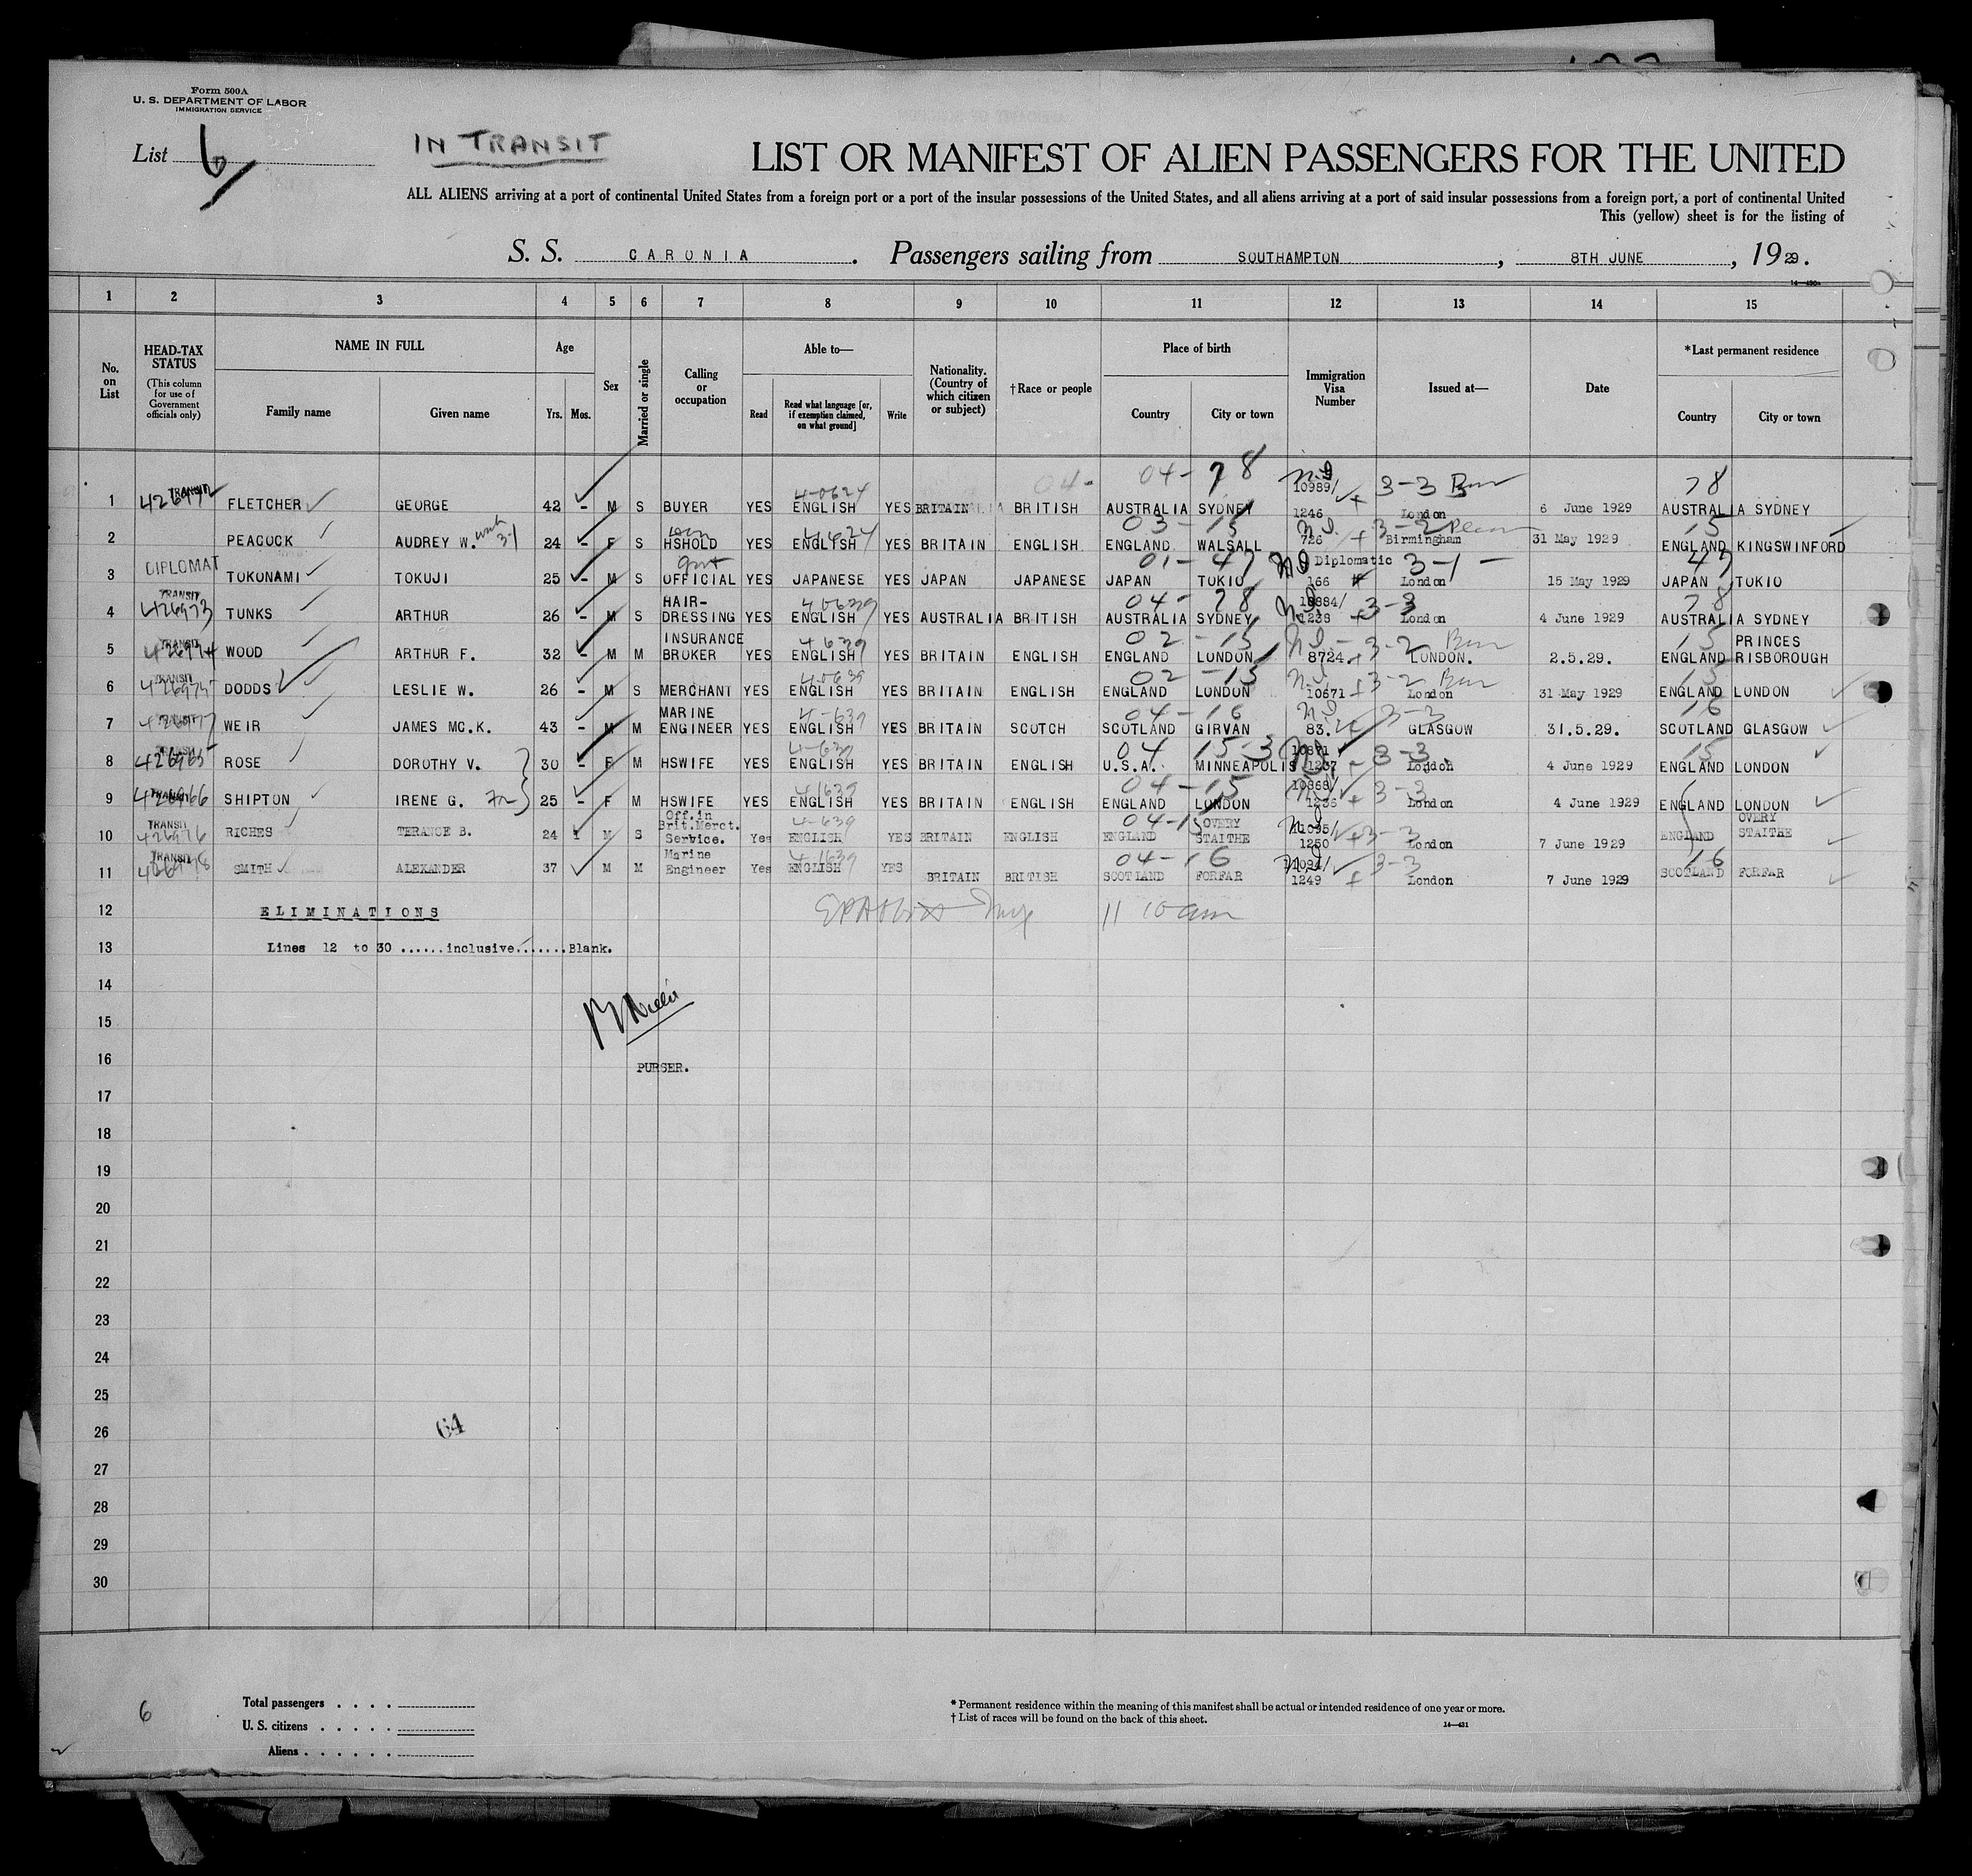 Form 500A
U. S. DEPARTMENT OF LABOR
IMMIGRATION SERVICE
List 6
IN TRANSIT
LIST OR MANIFEST OF ALIEN PASSENGERS FOR THE UNITED
ALL ALIENS arriving at a port of continental United States from a foreign port or a port of the insular possessions of the United States, and all aliens arriving at a port of said insular possessions from a foreign port, a port of continental United
This (yellow) sheet is for the listing of
S. S. CARONIA. Passengers sailing from SOUTHAMPTON, 8TH JUNE, 1929.
14—430a
1 2 3 4 5 6 7 8 9 10 11 12 13 14 15
No. on List
HEAD-TAX STATUS (This column for use of Government officials only)
NAME IN FULL
Family name Given name
Age
Yrs. Mos.
Sex
Married or single
Calling or occupation
Able to—
Read Read what language [or, if exemption claimed, on what ground] Write
Nationality. (Country of which citizen or subject)
†Race or people
Place of birth
Country City or town
Immigration Visa Number
Issued at—
Date
*Last permanent residence
Country City or town
04- 04-78 3-3 78
1 TRANSIT FLETCHER GEORGE 42 - M S BUYER YES ENGLISH YES BRITAIN BRITISH AUSTRALIA SYDNEY 10989/ 1246 London 6 June 1929 AUSTRALIA SYDNEY
03-15 3-2 15
2 PEACOCK AUDREY W. 24 - F S HSHOLD YES ENGLISH YES BRITAIN ENGLISH ENGLAND WALSALL 726 Birmingham 31 May 1929 ENGLAND KINGSWINFORD
Govt 01-47 Diplomatic 3-1- 47
3 DIPLOMAT TOKONAMI TOKUJI 25 - M S OFFICIAL YES JAPANESE YES JAPAN JAPANESE JAPAN TOKIO 166 London 15 May 1929 JAPAN TOKIO
04-78 3-3 78
4 TRANSIT 426973 TUNKS ARTHUR 26 - M S HAIR-DRESSING YES ENGLISH YES AUSTRALIA BRITISH AUSTRALIA SYDNEY 1238 London 4 June 1929 AUSTRALIA SYDNEY
02-15 3-2 15
5 TRANSIT 426974 WOOD ARTHUR F. 32 - M M INSURANCE BROKER YES ENGLISH YES BRITAIN ENGLISH ENGLAND LONDON 8724 LONDON. 2.5.29. ENGLAND PRINCES RISBOROUGH
02-15 3-2 15
6 TRANSIT 426975 DODDS LESLIE W. 26 - M S MERCHANT YES ENGLISH YES BRITAIN ENGLISH ENGLAND LONDON 10671 London 31 May 1929 ENGLAND LONDON
04-16 3-3 16
7 426977 WEIR JAMES MC.K. 43 - M M MARINE ENGINEER YES ENGLISH YES BRITAIN SCOTCH SCOTLAND GIRVAN 83. GLASGOW 31.5.29. SCOTLAND GLASGOW
04 15-3 3-3 15
8 426965 ROSE DOROTHY V. 30 - F M HSWIFE YES ENGLISH YES BRITAIN ENGLISH U.S.A. MINNEAPOLIS 1237 London 4 June 1929 ENGLAND LONDON
04-15 3-3
9 TRANSIT 426966 SHIPTON IRENE G. 25 - F M HSWIFE YES ENGLISH YES BRITAIN ENGLISH ENGLAND LONDON 1236 London 4 June 1929 ENGLAND LONDON
04-15 3-3
10 TRANSIT 426976 RICHES TERANCE B. 24 1 M S Off.in Brit.Merct. Service. Yes ENGLISH YES BRITAIN ENGLISH ENGLAND OVERY STAITHE 11095/ 1250 London 7 June 1929 ENGLAND OVERY STAITHE
04-16 3-3 16
11 TRANSIT 426978 SMITH ALEXANDER 37 M M Marine Engineer Yes ENGLISH YES BRITAIN BRITISH SCOTLAND FORFAR 11094/ 1249 London 7 June 1929 SCOTLAND FORFAR
12 ELIMINATIONS 11 10 am
13 Lines 12 to 30 ......inclusive.......Blank.
14
15
16 PURSER.
17
18
19
20
21
22
23
24
25
26 64
27
28
29
30
6
Total passengers . . . .
U. S. citizens . . . . .
Aliens . . . . . .
* Permanent residence within the meaning of this manifest shall be actual or intended residence of one year or more.
† List of races will be found on the back of this sheet.
14—431